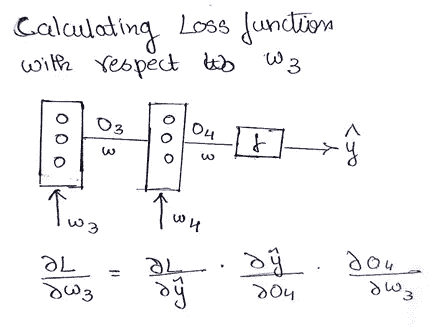 Calculating Loss function
with respect to w3
O3 O4
w w f ŷ
w3 w4
∂L/∂w3 = ∂L/∂ŷ . ∂ŷ/∂O4 . ∂O4/∂w3